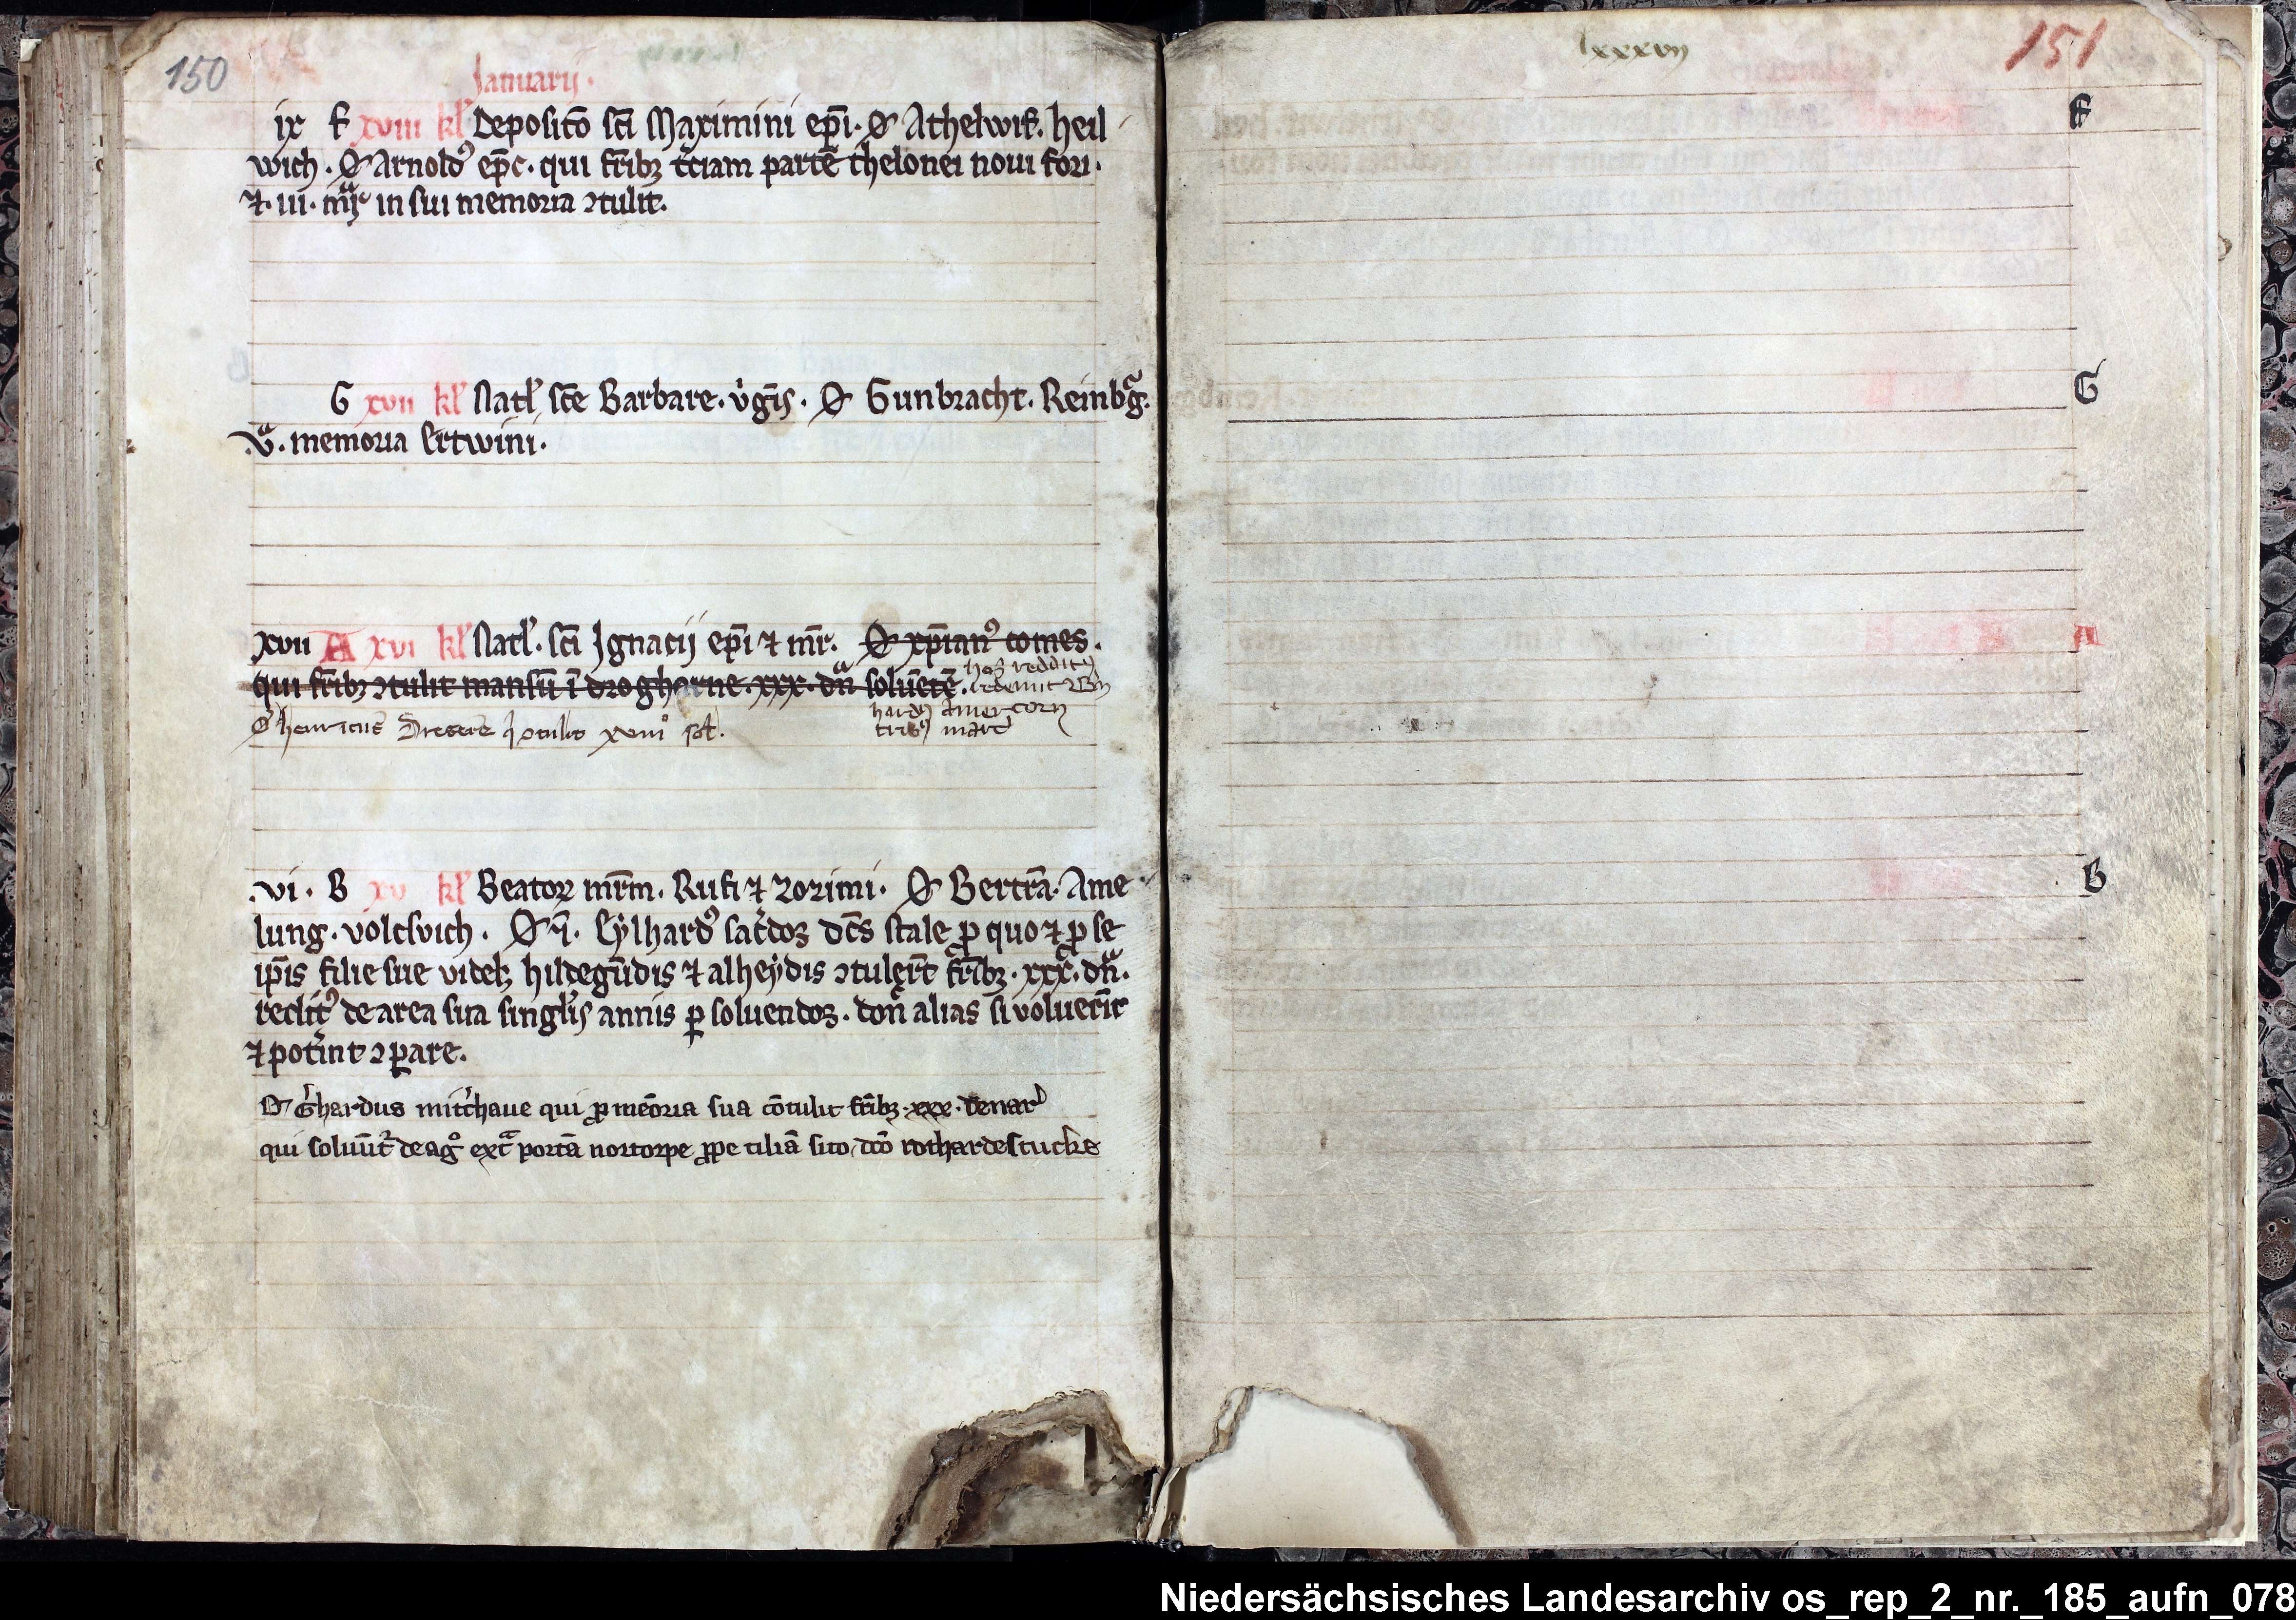 150
Januarij.
ix F xviii kl' Deposit̄o sc̄i Maximini ep̄i. O Athelwif. heil
wich. O Arnold' ep̄c. qui fr̄ib; t'ciam partē thelonei noui fori.
⁊ iii. mr̄ in sui memoria ꝯtulit.
G xvii kl' Natl' sc̄e Barbare. v'gīs. O Gunbracht. Reinbg.
v. memoria Ertwini.
xvii A xvi kl' Natl'. sc̄i Ignacij ep̄i ⁊ mr̄. O xp̄ian' comes.
qui fr̄ib; ꝯtulit mansū ī droghorne. xxx. dn̄ soluētē.
hos reddit'
redemit B'n
hard'
trib' marc'
O henricus Dresere q ꝯtulit xviii sol'.
vi. B xv kl' Beatoꝝ mr̄m. Rufi ⁊ Zozimi. O Bertrā. Ame
lung. volcsvich. O Eylhard' sac'dos dc̄s stale ꝓ quo ⁊ ꝓ se
ip̄is filie sue videl; hildegūdis ⁊ alheydis ꝯtuler̄t fr̄ib;. xxx. dn̄.
reddit' de area sua singl'is annis ꝑsoluendos. don̄ alias si voluerīt
⁊ pot'int ꝯꝑare.
O G'hardus mit'chaue qui ꝓ memōria sua cōtulit fr̄ib;. xxx. denar'
qui soluūt' de ag° ext̄ portā nortorpe ꝓpe tiliā sito, dc̄o rothardestucke
lxxxvij
151
F
G
A
B
Niedersächsisches Landesarchiv os_rep_2_nr._185_aufn_078